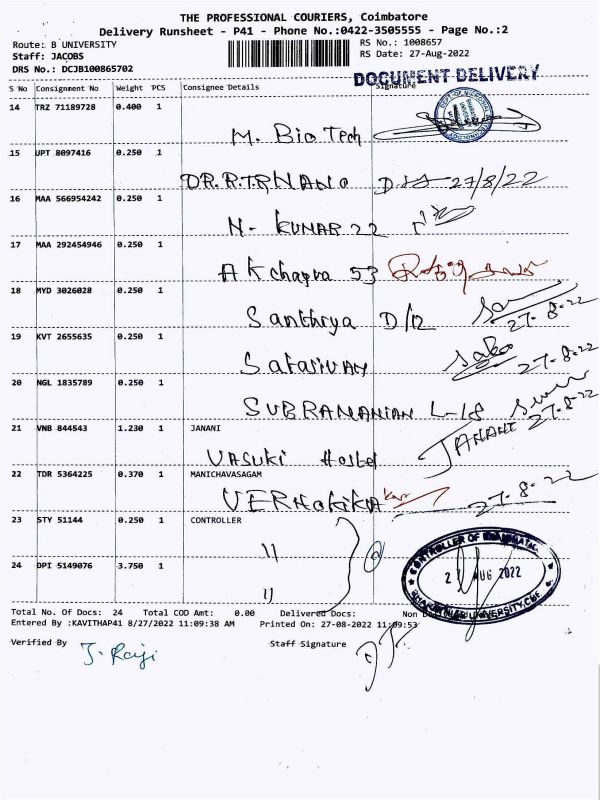 THE PROFESSIONAL COURIERS, Coimbatore
Delivery Runsheet - P41 - Phone No.:0422-3505555 - Page No.:2
Route: B UNIVERSITY
RS No.: 1008657
Staff: JACOBS
RS Date: 27-Aug-2022
DRS No.: DCJB100865702
DOCUMENT DELIVERY
S No Consignment No Weight PCS Consignee Details Signature
14 TRZ 71189728 0.400 1
M. Bio Tech
15 UPT 8097416 0.250 1
DR.R.T.R NANO 27/8/22
16 MAA 566954242 0.250 1
N- KUMAR 22
17 MAA 292454946 0.250 1
A K chapra 53
18 MYD 3026028 0.250 1
Santhiya D/12 27-8-22
19 KVT 2655635 0.250 1
Satasivam 27-8-22
20 NGL 1835789 0.250 1
SUBRAMANIAN L-18 27-8-22
21 VNB 844543 1.230 1 JANANI
VASUKI Hostel JANANI
22 TDR 5364225 0.370 1 MANICHAVASAGAM
27-8-22
23 STY 51144 0.250 1 CONTROLLER
"
24 DPI 5149076 3.750 1
"
CONTROLLER OF EXAMINATIONS
AUG 2022
BHARATHIAR UNIVERSITY, CBE
Total No. Of Docs: 24 Total COD Amt: 0.00 Delivered Docs: Non
Entered By :KAVITHAP41 8/27/2022 11:09:38 AM Printed On: 27-08-2022 11:09:53
Verified By Staff Signature